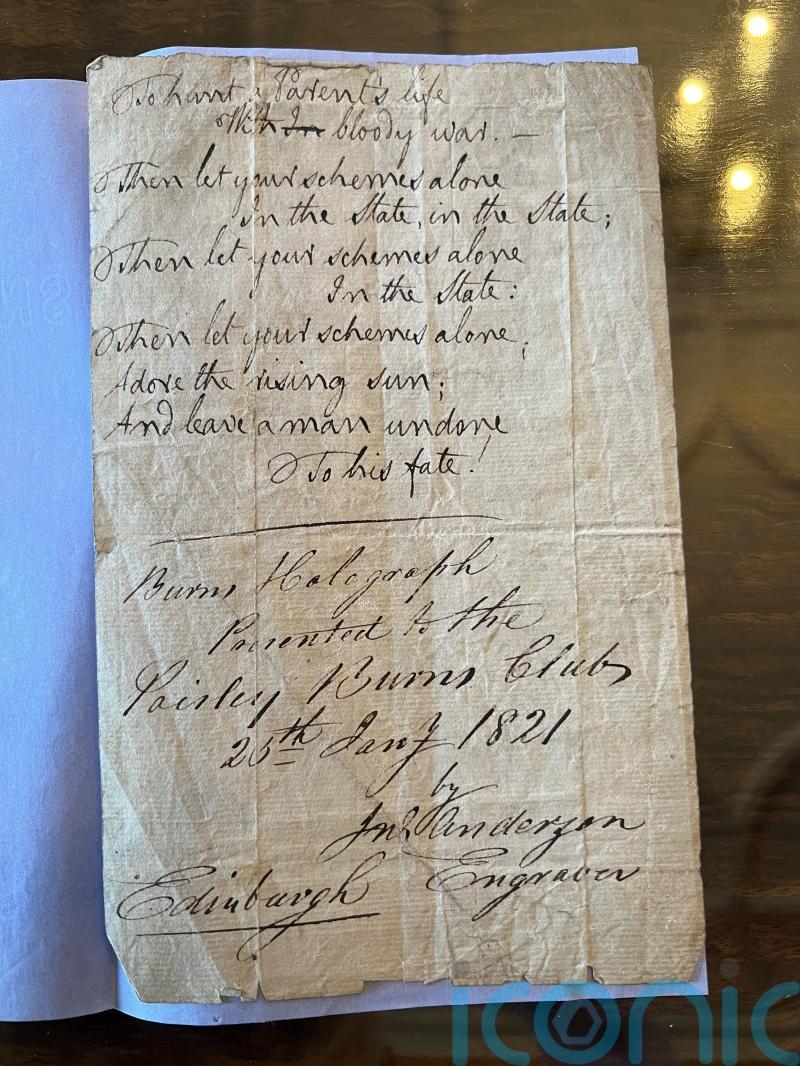 To hunt a Parent's life
With In bloody war. —
Then let your schemes alone
In the State, in the State;
Then let your schemes alone
In the State:
Then let your schemes alone,
Adore the rising sun;
And leave a man undone
To his fate!
Burns Holograph
Presented to the
Paisley Burns Club
25th Jany 1821
by
Jno Anderson
Engraver
Edinburgh
iconic